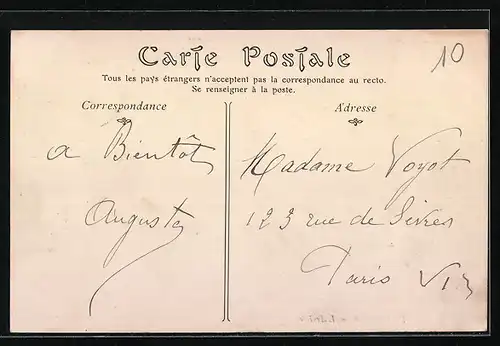 Carte Postale
10
Tous les pays étrangers n'acceptent pas la correspondance au recto.
Se renseigner à la poste.
Correspondance
a Bientôt
Auguste
Adresse
Madame Voyot
123 rue de Sèvres
Paris VI